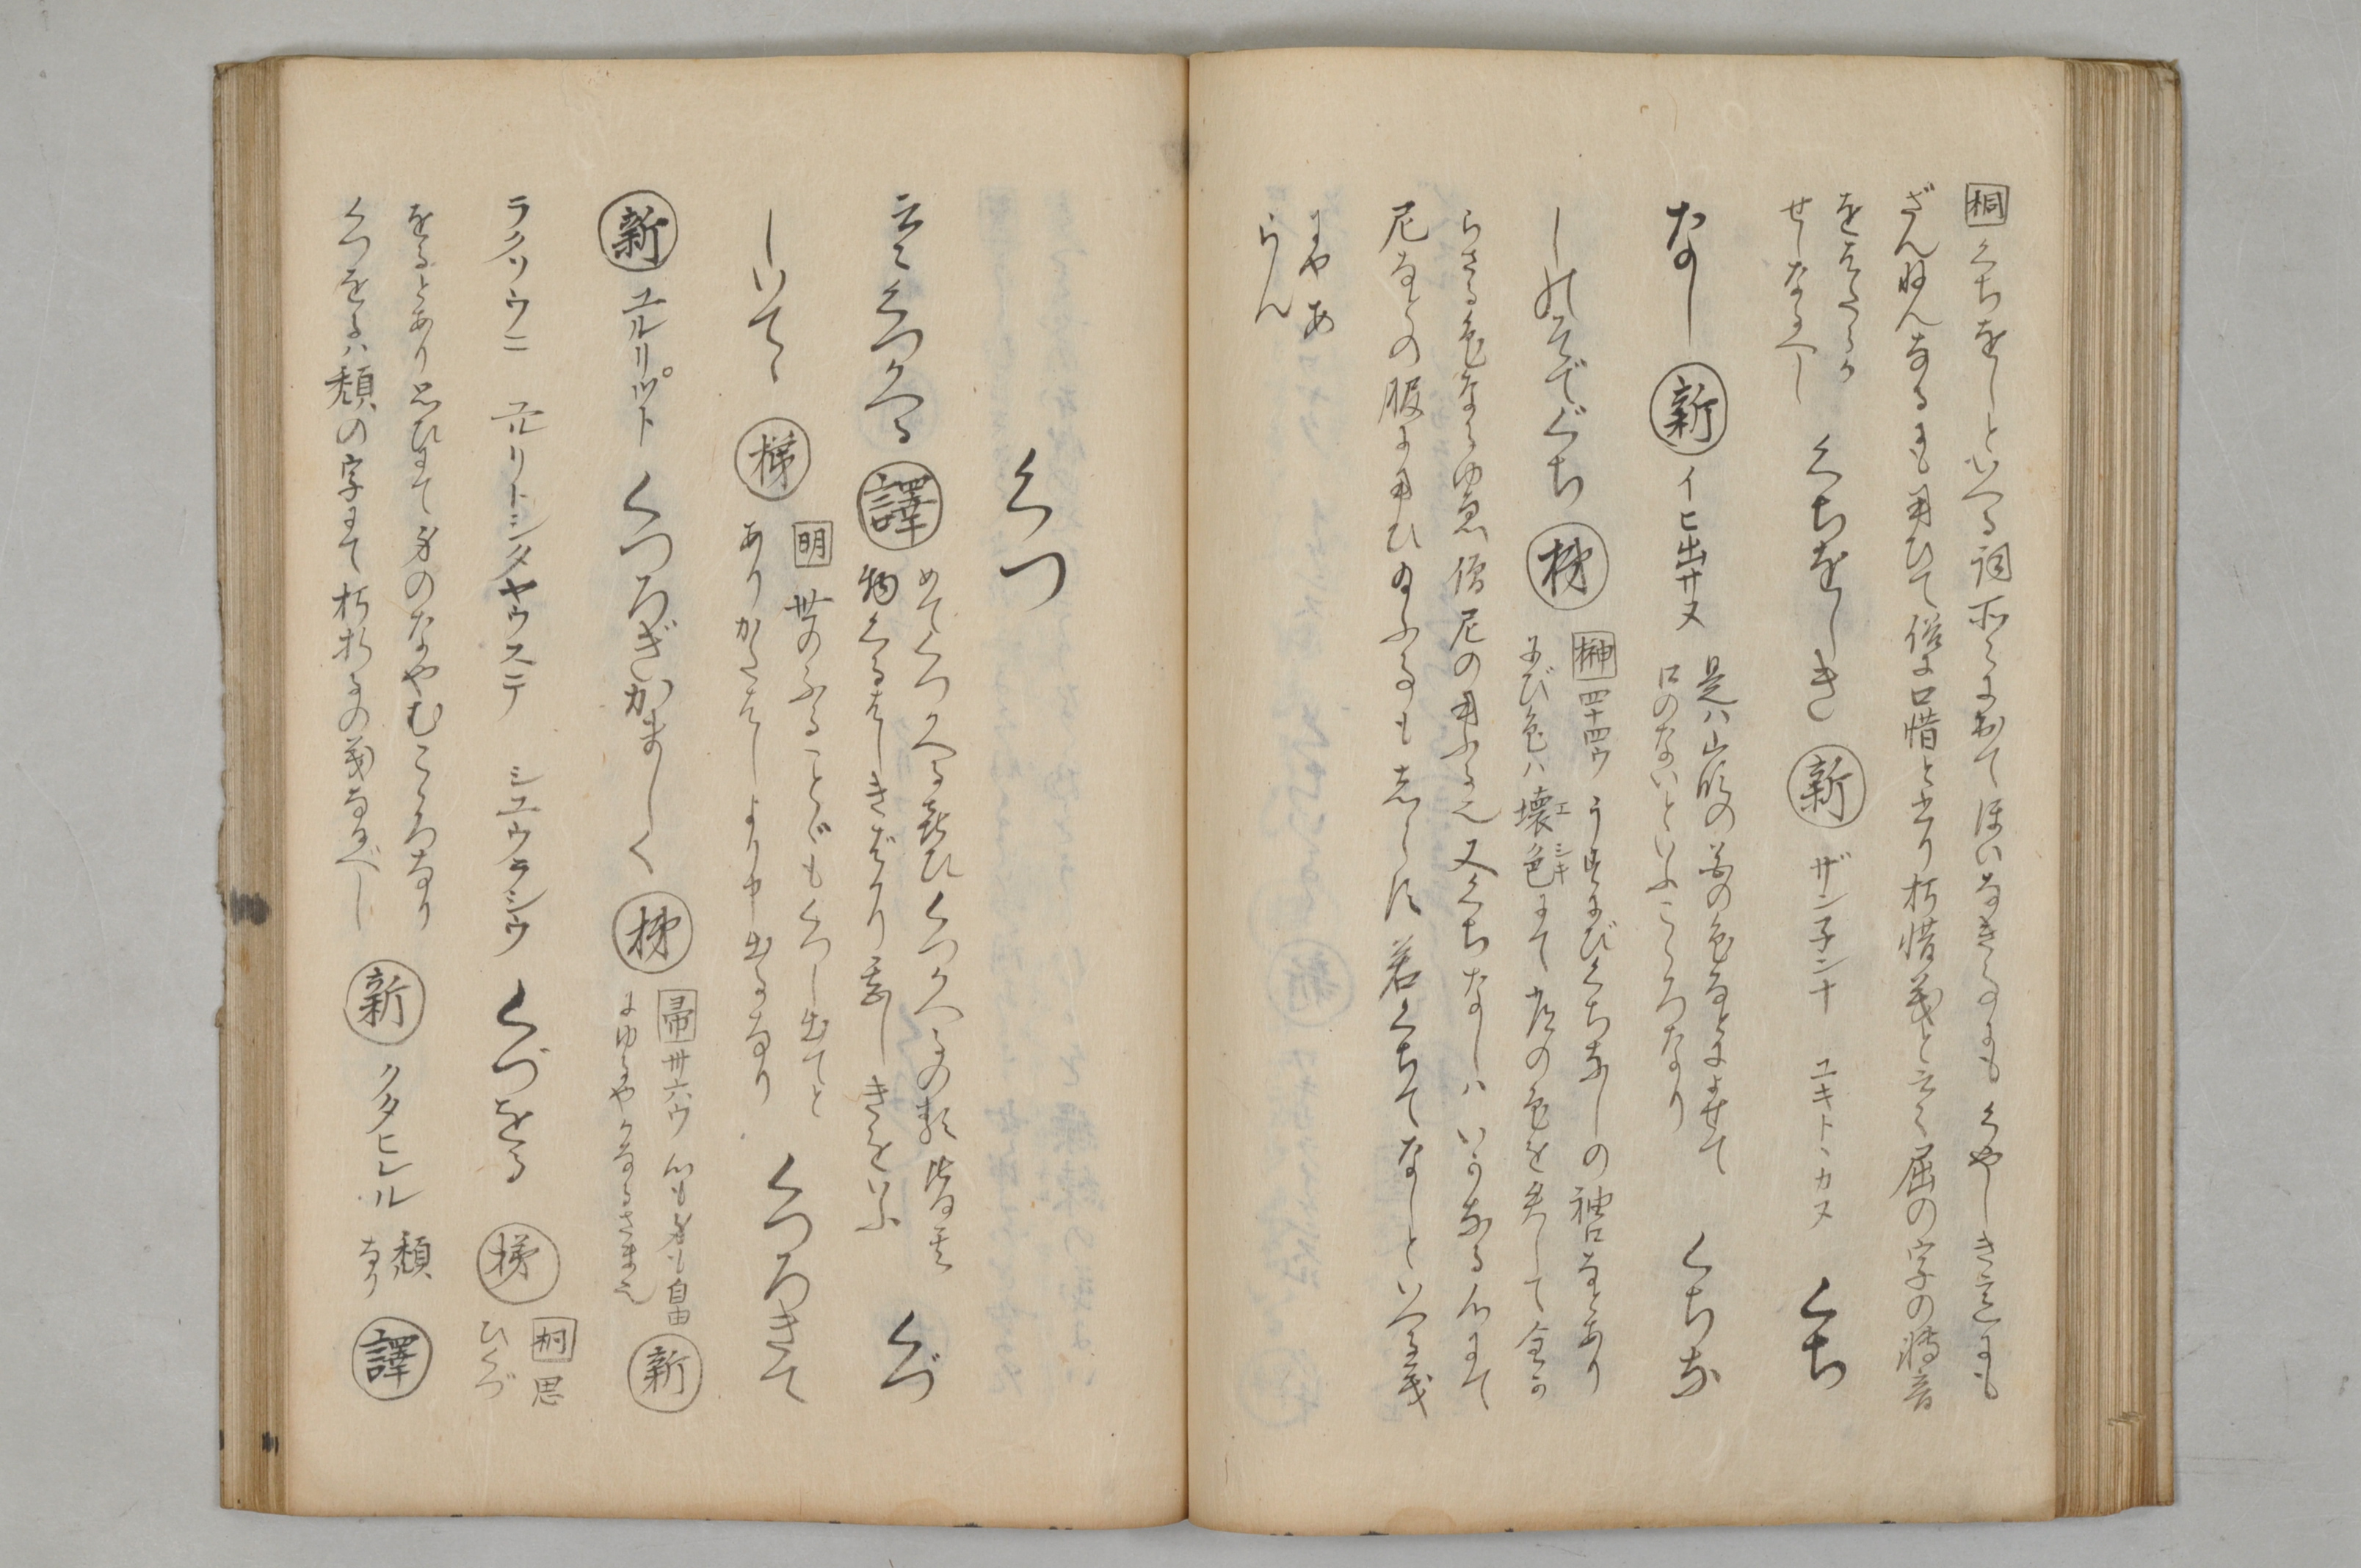 桐くちをしといへる詞所々におゐてほいなき事にもくやしき意にも
ざんねんなるにも用ひて俗に口惜と書り朽惜義と云々屈の字の轉音
せしなるべし
くちをしき 新 ザン子ンナ ユキトヽカヌ くち
なし 新 イヒ出サヌ
是ハ山吹の花の色なとによせて
口のないといふこゝろなり
くちな
しのそでぐち 梯
榊四十四ウ うすにびくちなしの袖口なとあり
にび色ハ壊色にて
らざる色なるゆゑ僧尼の用ふる也又くちなしハいかなる心にて
尼なとの服に用ひ給ふ事もしらず若くちてなしといへる義
にやあ
らん
くつ
くつかへる 譯
めでくつかへる喜ひくつかへるの類皆其
物くるはしきばかり甚しきをいふ
くづ
しいてゝ 梯
明 世のふることゞもくつし出てと
ありかたはしより申出るなり
くつろきて
新 ユルリツト くつろぎかましく 梯
帚 卅六ウ 心も身も自由
にゆるやかなるさま也
新
ラクソウニ ユルリトシタヤウステ シユウラシウ くづをる 梯
桐 思
ひくづ
をるとあり思ひにて身のなやむこゝろなり
くつをるハ頽の字にて朽折るの義なるべし
新 クタヒレル
頽
なり
譯